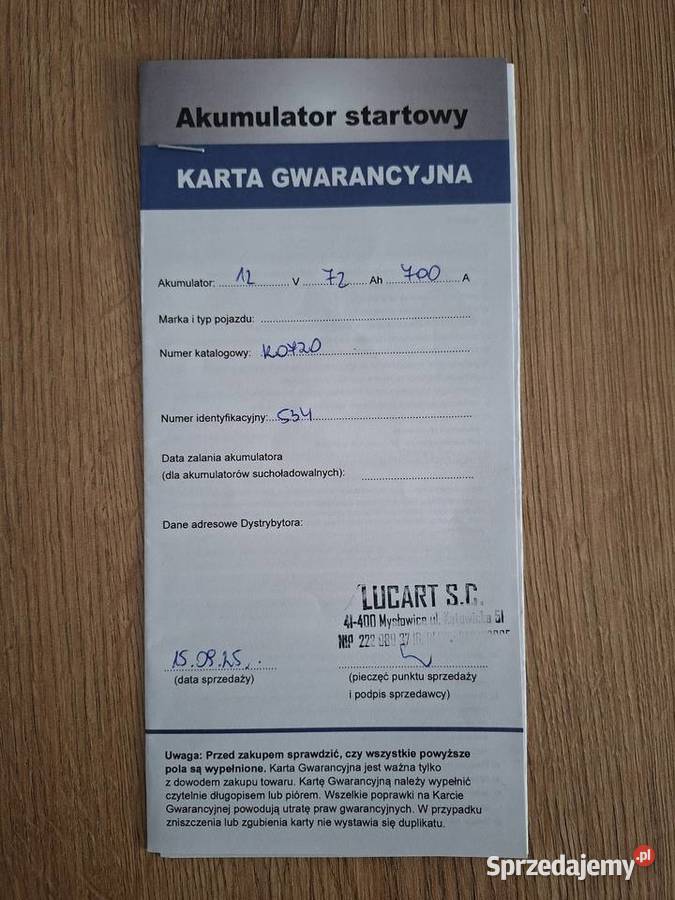 Akumulator startowy
KARTA GWARANCYJNA
Akumulator: 12 V 72 Ah 700 A
Marka i typ pojazdu:
Numer katalogowy: K0720
Numer identyfikacyjny: 534
Data zalania akumulatora
(dla akumulatorów suchoładowalnych):
Dane adresowe Dystrybutora:
LUCART S.C.
41-400 Mysłowice ul. Katowicka 51
NIP 222
15.09.25
(data sprzedaży)
(pieczęć punktu sprzedaży
i podpis sprzedawcy)
Uwaga: Przed zakupem sprawdzić, czy wszystkie powyższe
pola są wypełnione. Karta Gwarancyjna jest ważna tylko
z dowodem zakupu towaru. Kartę Gwarancyjną należy wypełnić
czytelnie długopisem lub piórem. Wszelkie poprawki na Karcie
Gwarancyjnej powodują utratę praw gwarancyjnych. W przypadku
zniszczenia lub zgubienia karty nie wystawia się duplikatu.
Sprzedajemy.pl